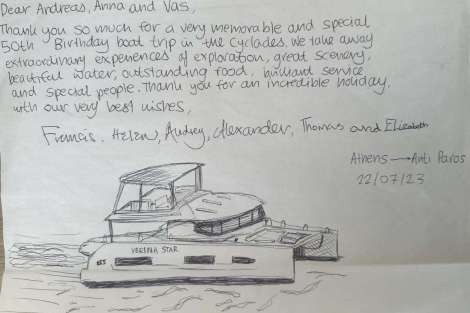 Dear Andreas, Anna and Vas,
Thank you so much for a very memorable and special
50th Birthday boat trip in the Cyclades. We take away
extraordinary experiences of exploration, great scenery,
beautiful water, outstanding food, brilliant service
and special people. Thank you for an incredible holiday.
with our very best wishes,
Francis, Helen, Audrey, Alexander, Thomas and Elizabeth
Athens → Anti Paros
22/07/23
STAR